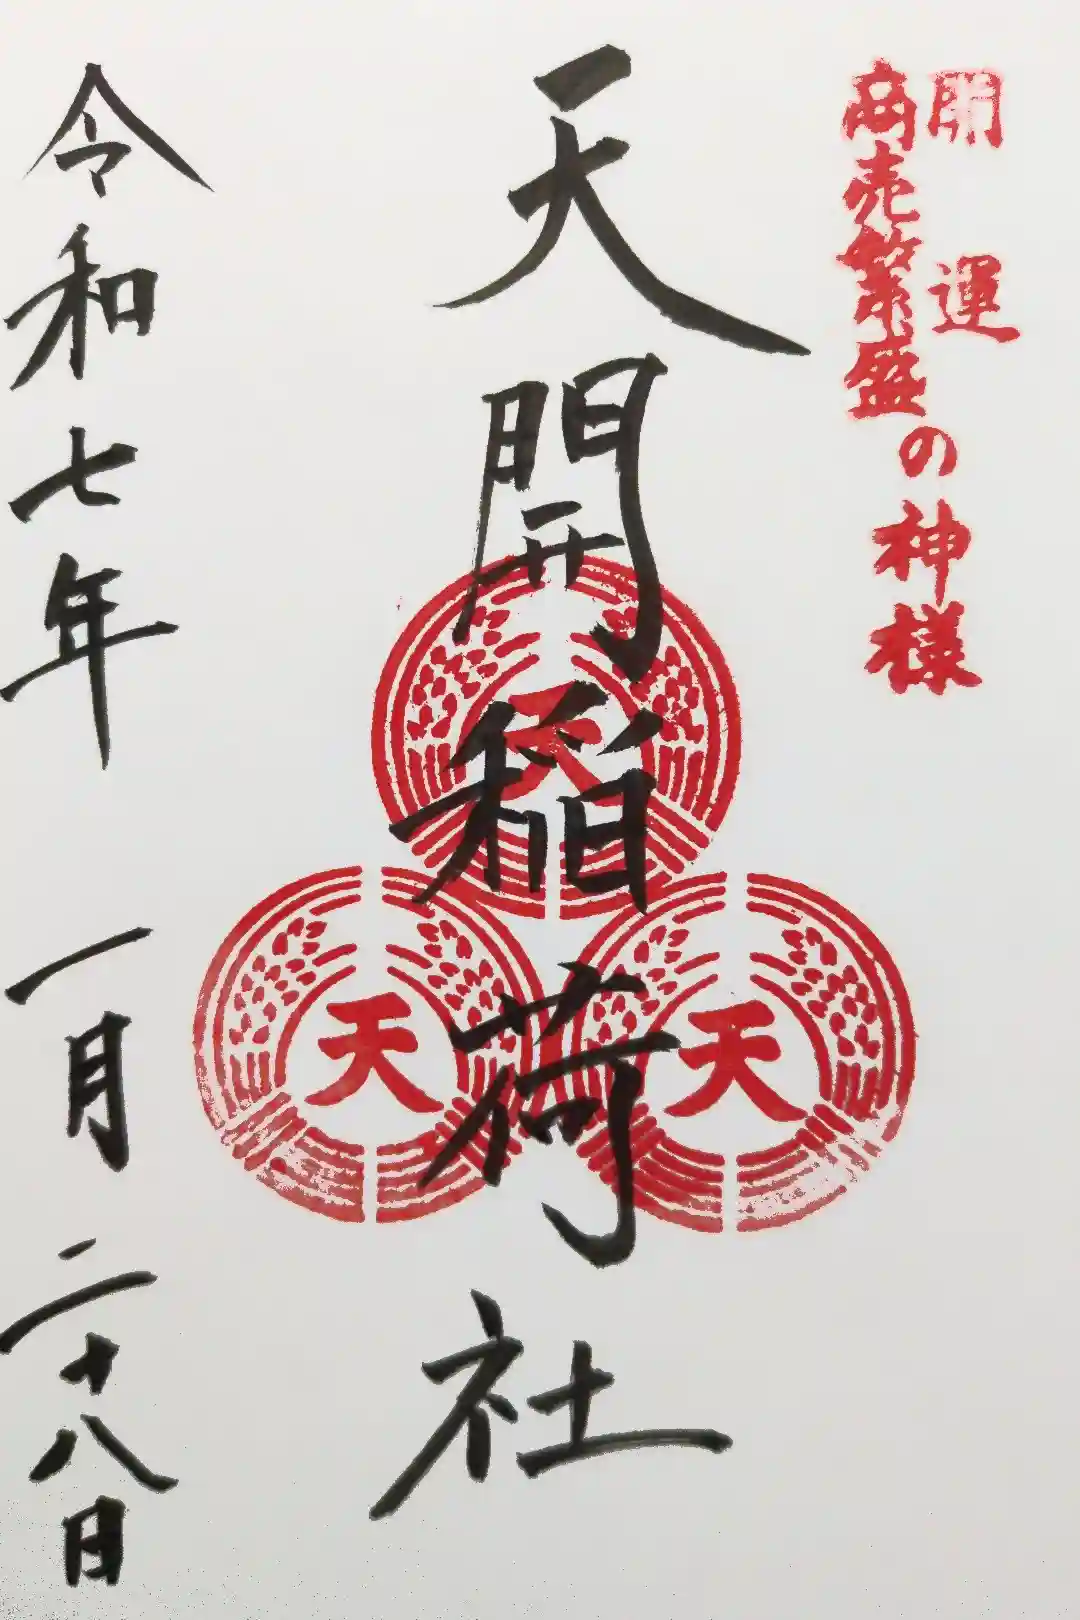 開運
商売繁盛
の神様
天開稲荷社
天
天
天
令和七年 一月二十八日